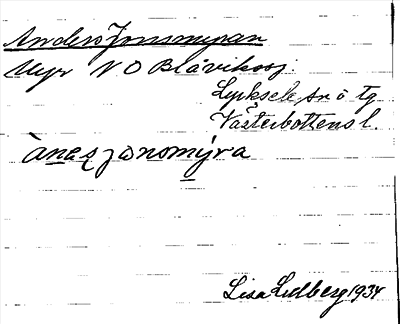 Anders Jonsmyran
Myr N O Blåvikssj.
Lycksele sn o tg
Västerbottens l.
ànaṣ jonomýra
Lisa Lidberg 1934